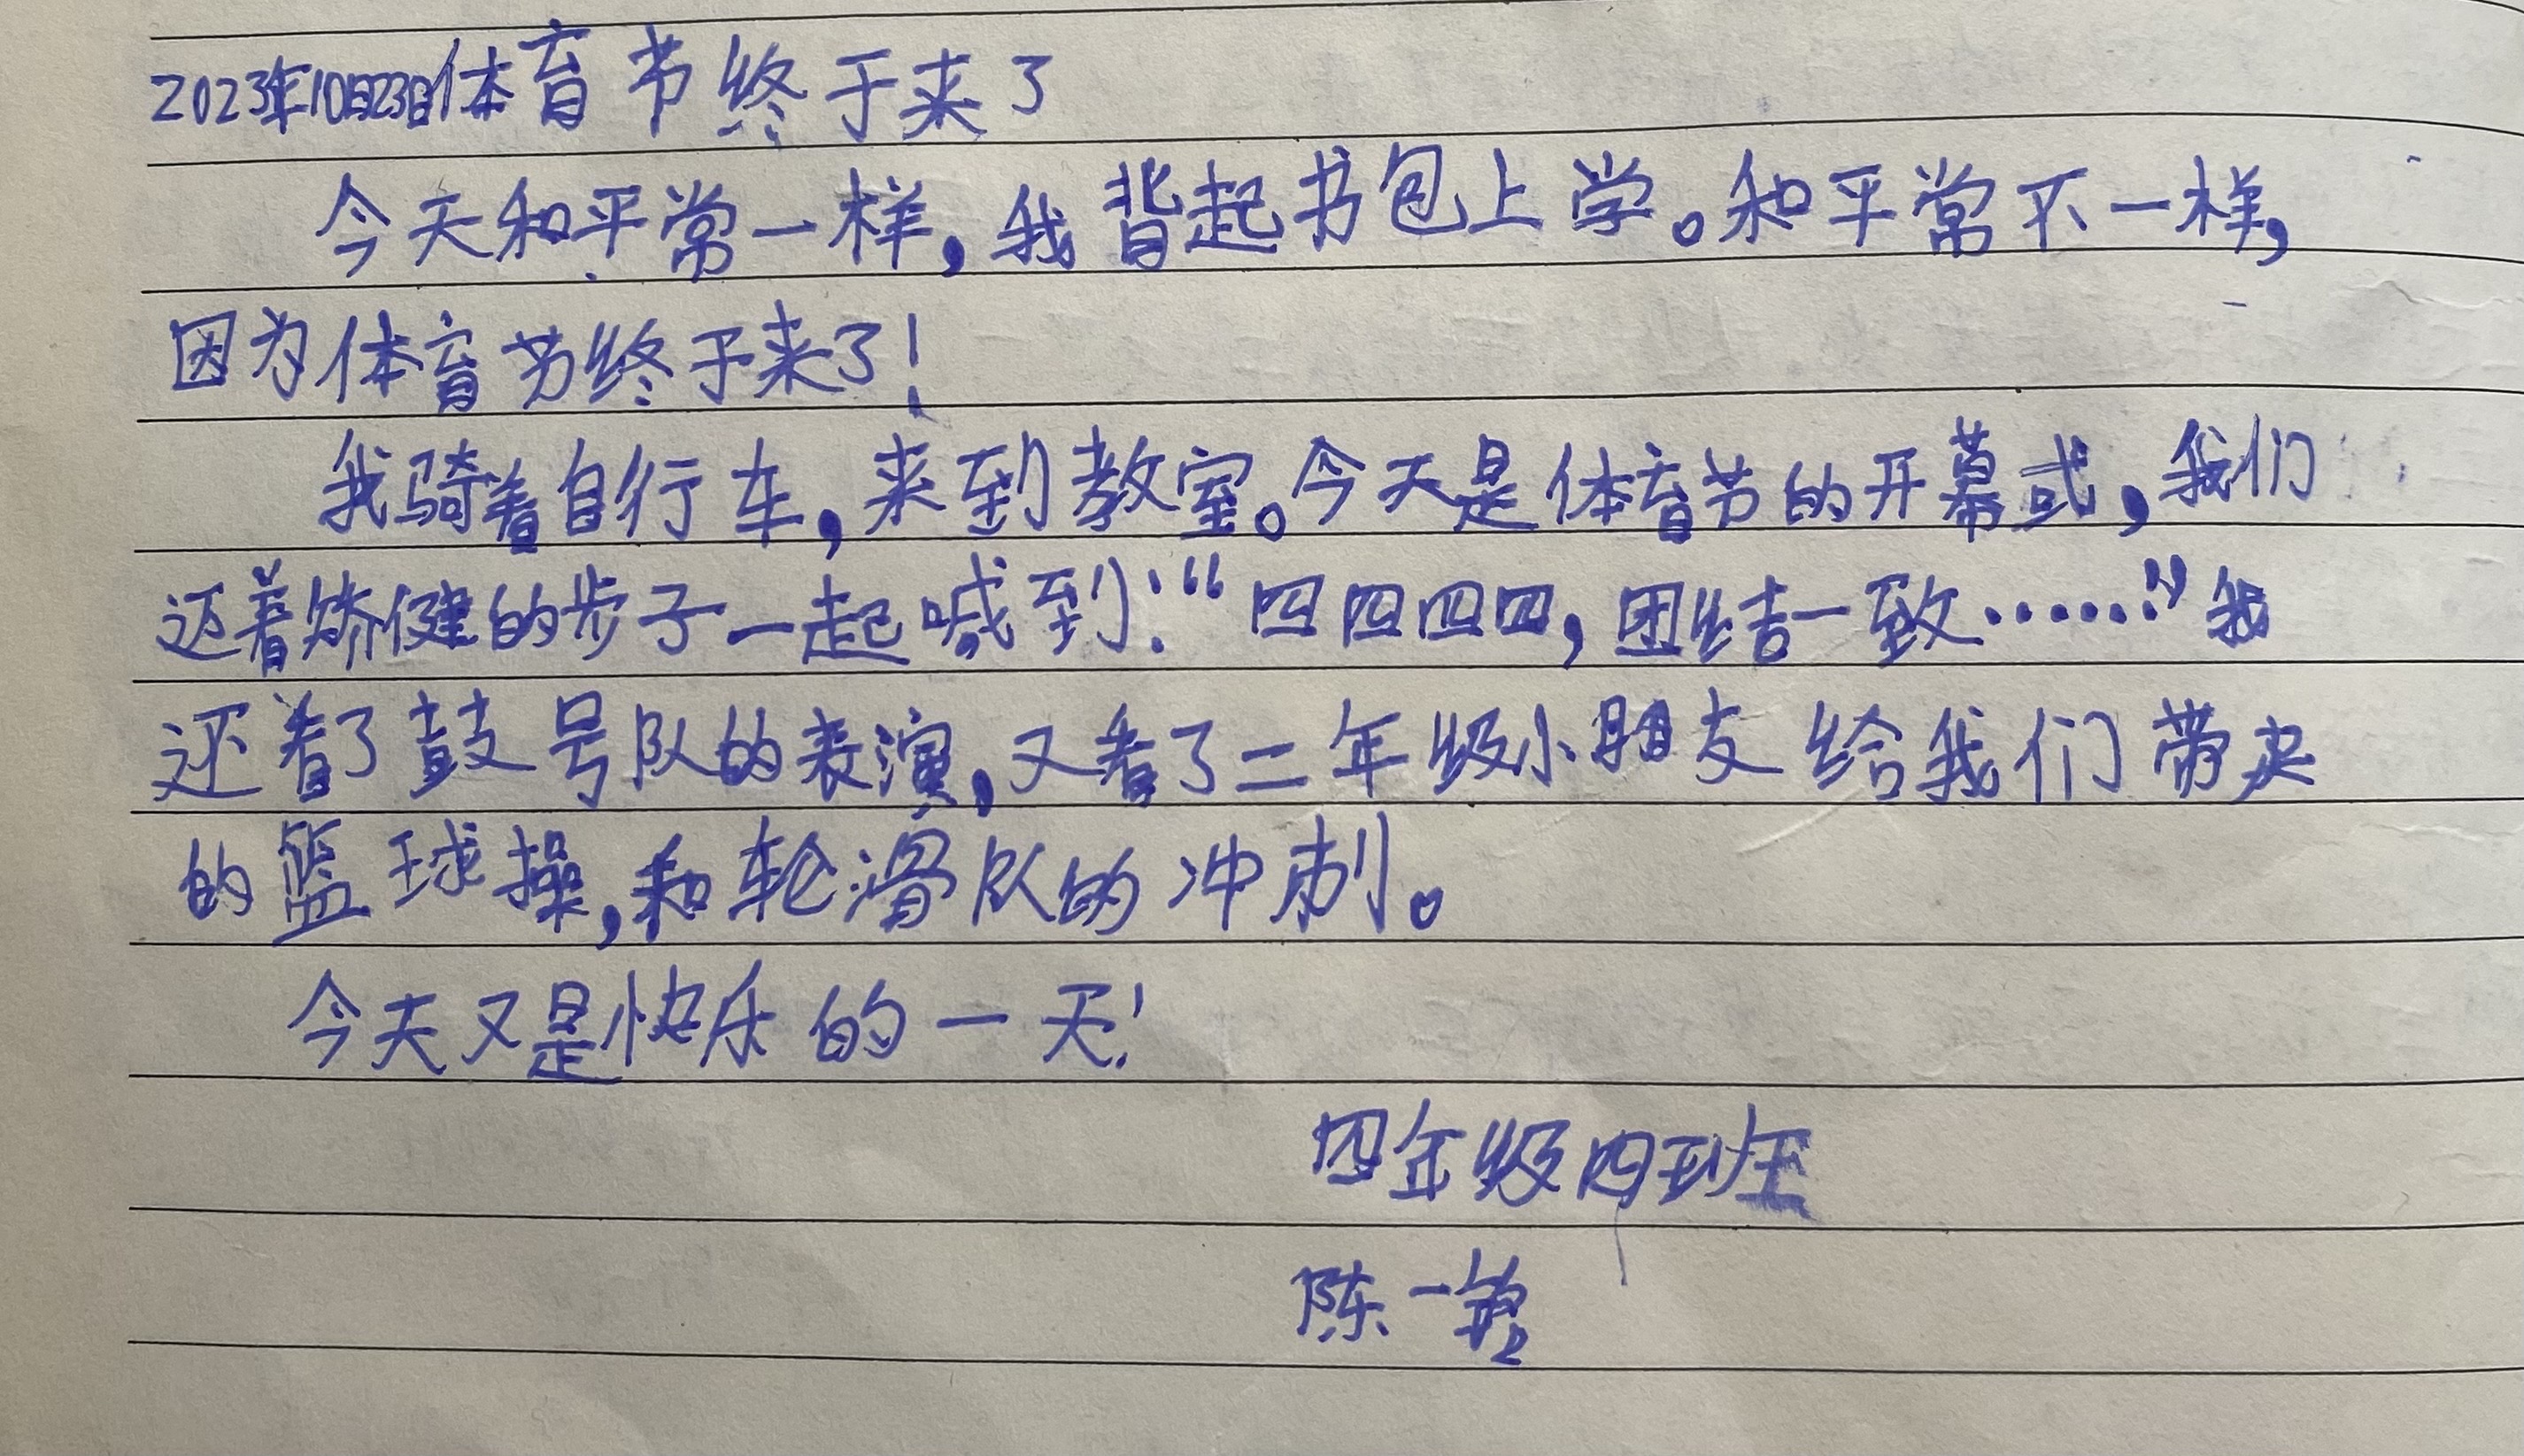 2023年10月23日体育节终于来了
今天和平常一样,我背起书包上学。和平常不一样,
因为体育节终于来了!
我骑着自行车,来到教室。今天是体育节的开幕式,我们
迈着矫健的步子一起喊到:“四四四四,团结一致……”我
还看了鼓号队的表演,又看了二年级小朋友给我们带来
的篮球操,和轮滑队的冲刺。
今天又是快乐的一天!
四年级四班
陈一